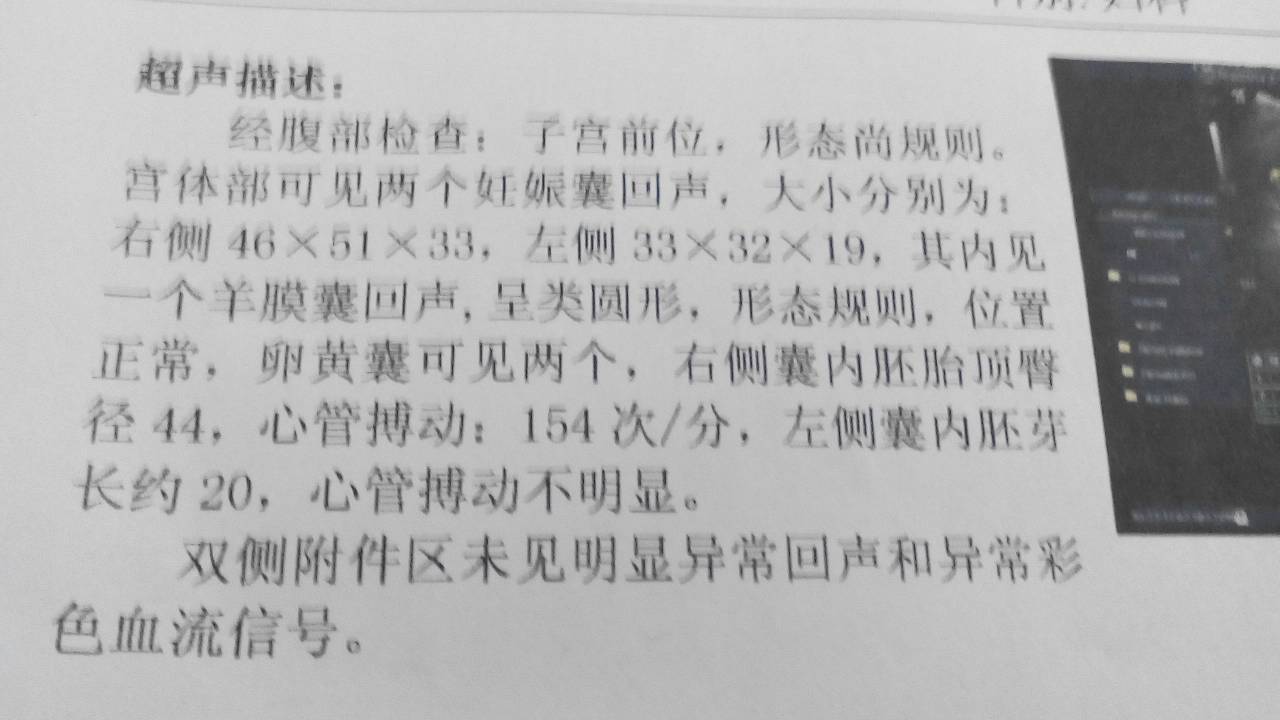 超声描述：
经腹部检查：子宫前位，形态尚规则。
宫体部可见两个妊娠囊回声，大小分别为：
右侧 46×51×33，左侧 33×32×19，其内见
一个羊膜囊回声，呈类圆形，形态规则，位置
正常，卵黄囊可见两个，右侧囊内胚胎顶臀
径 44，心管搏动：154 次/分，左侧囊内胚芽
长约 20，心管搏动不明显。
双侧附件区未见明显异常回声和异常彩
色血流信号。